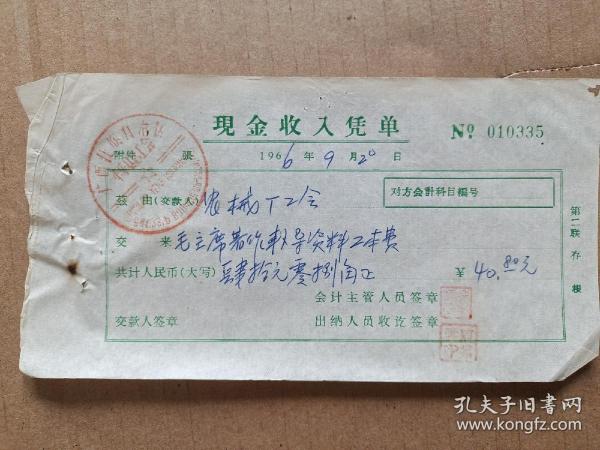 現金收入凭单
№ 010335
附件 張
1966年9月20日
兹由(交款人) 农械厂工会
对方会計科目編号
交来 毛主席著作 資料工本费
共计人民币(大写) 肆拾元零捌角正
¥ 40.80元
会计主管人员签章
交款人签章
出纳人员收讫签章
第二联存根
孔夫子旧书网
www.kongfz.com